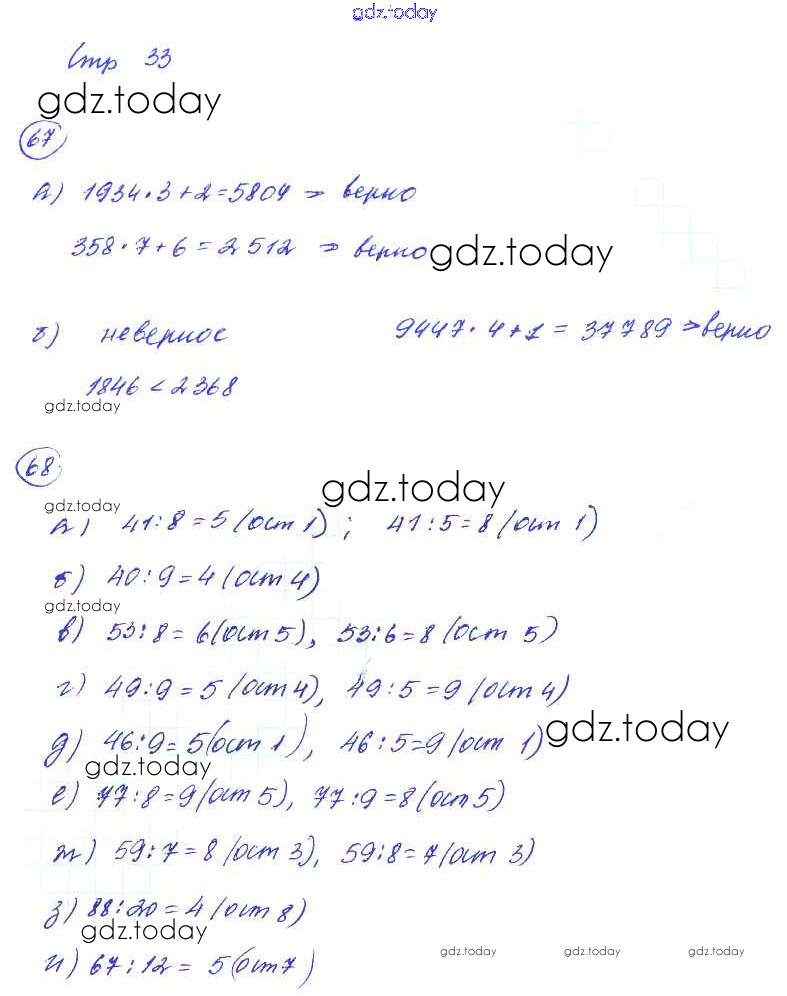 gdz.today
Стр 33
gdz.today
67
а) 1934·3+2=5804 => верно
358·7+6=2512 => верно gdz.today
б) неверное 9447·4+1=37789 => верно
1846<2368
gdz.today
68
gdz.today
gdz.today
а) 41:8=5(ост 1); 41:5=8(ост 1)
б) 40:9=4(ост 4)
gdz.today
в) 53:8=6(ост 5), 53:6=8(ост 5)
г) 49:9=5(ост 4), 49:5=9(ост 4)
д) 46:9=5(ост 1), 46:5=9(ост 1) gdz.today
gdz.today
е) 77:8=9(ост 5), 77:9=8(ост 5)
ж) 59:7=8(ост 3), 59:8=7(ост 3)
з) 88:20=4(ост 8)
gdz.today
и) 67:12=5(ост 7) gdz.today gdz.today gdz.today